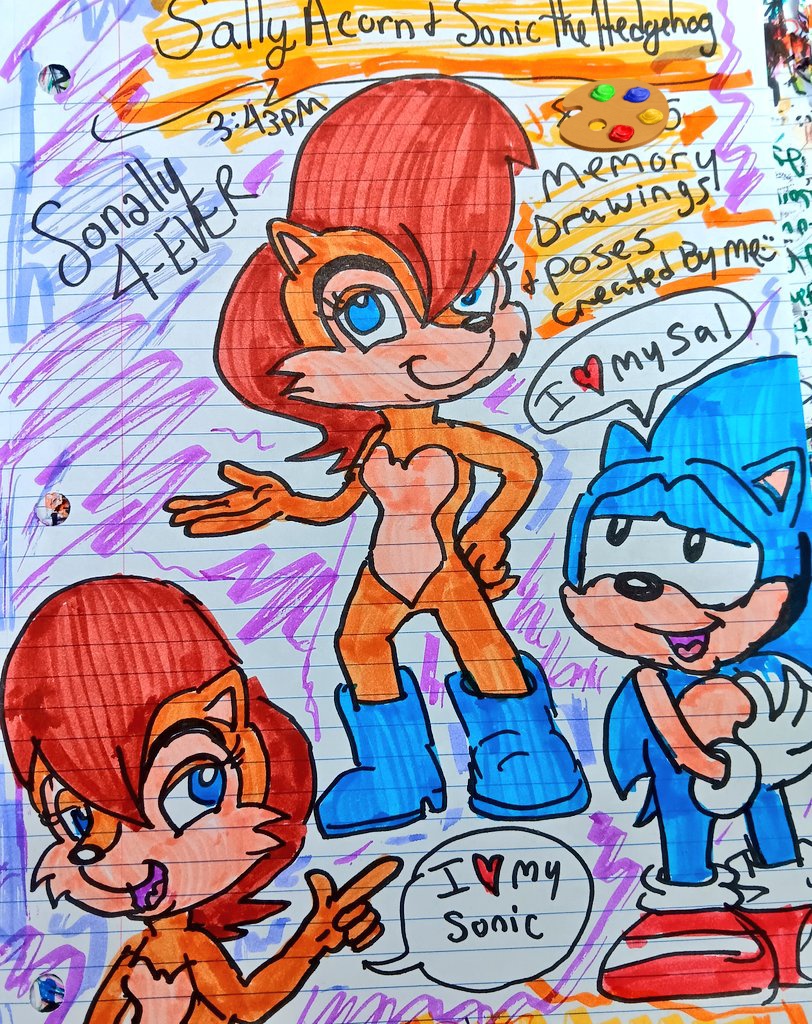 Sally Acorn & Sonic the Hedgehog
3:43pm
5
Sonally
4-EVER
Memory
Drawings
& Poses
created By Me
I ♥ my Sal
I ♥ my
Sonic